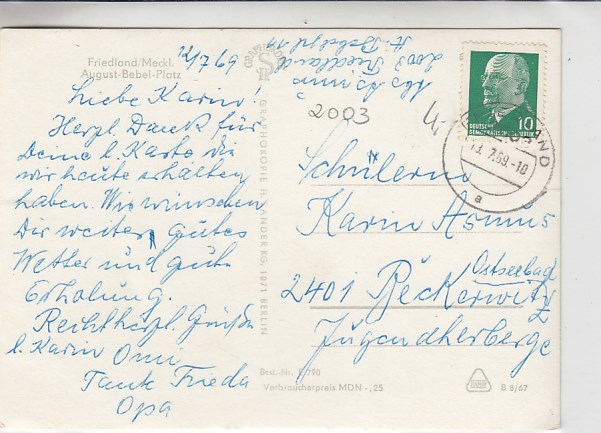 Friedland/Meckl.
August-Bebel-Platz
12/7 69
Liebe Karin!
Herzl. Dank für
Deine l. Karte die
wir heute erhalten
haben. Wir wünschen
Dir weiter gutes
Wetter und gute
Erholung.
Rechtherzl. Grüße
l. Karin Omi
Tante Frieda
Opa
Abs Asmus
2003 Friedland
2003
GRAPHOKOPIE H. SANDER KG, 1971 BERLIN
10
DEUTSCHE
DEMOKRATISCHE REPUBLIK
13.7.69.-10
a
Schülerin
Karin Asmus
Ostseebad
2401 Beckerwitz
Jugendherberge
Best.-Nr. E 790
Verbraucherpreis MDN -,25
B 8/67